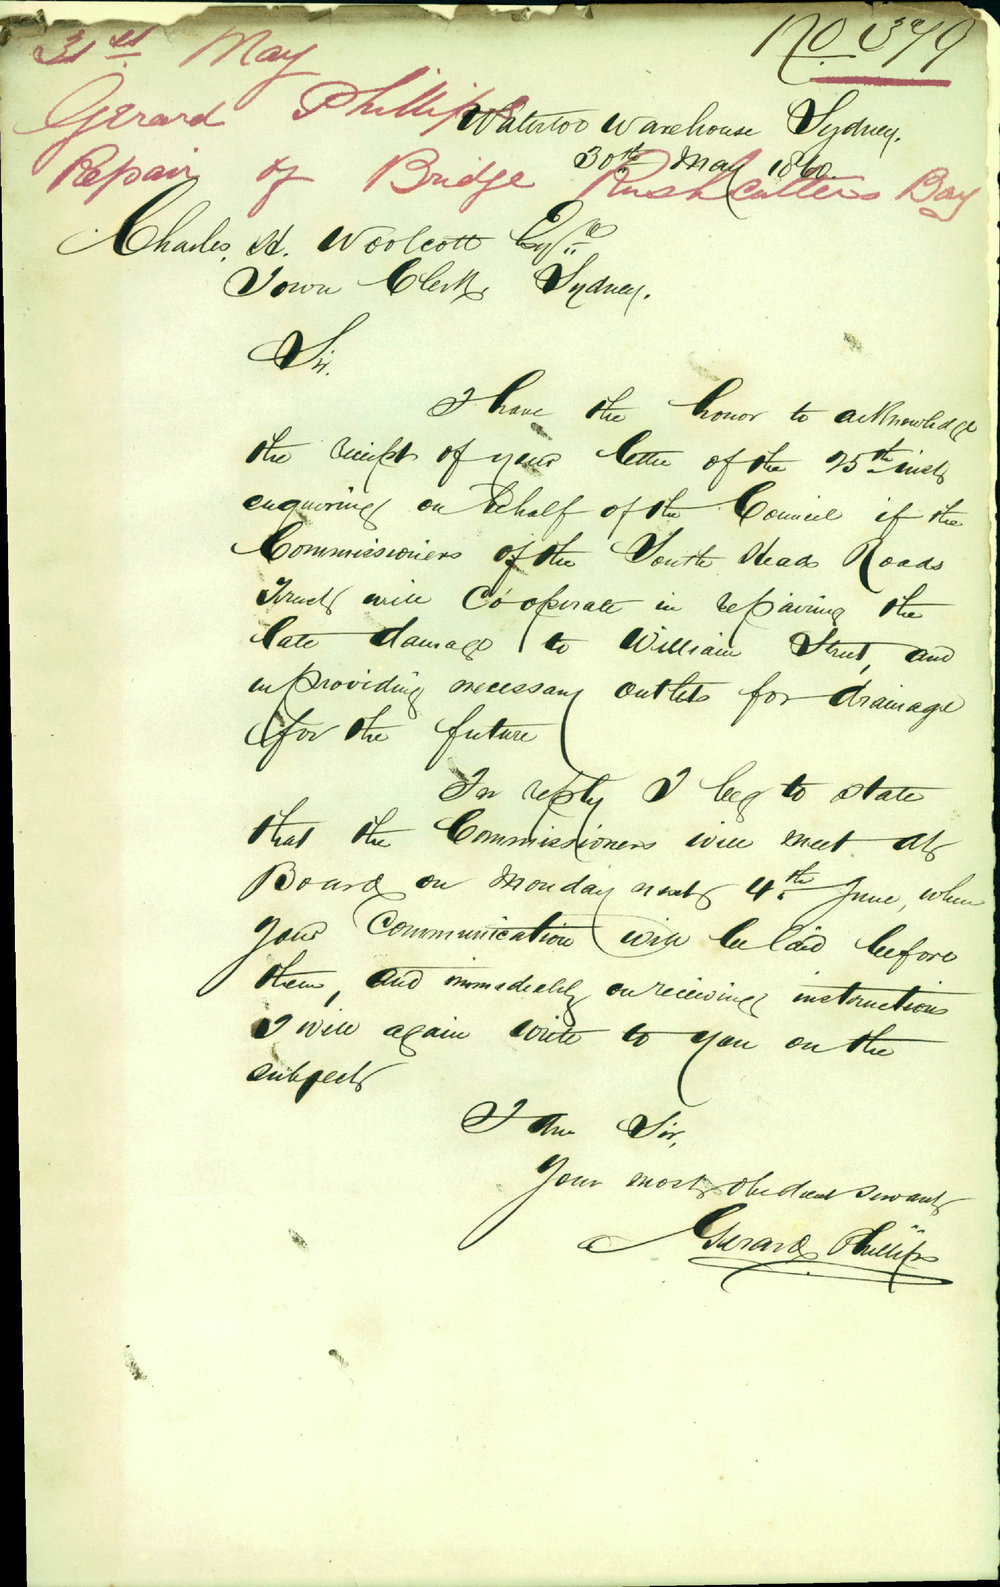 No 379
31st May
Gerard Phillips
Repair of Bridge Rushcutters Bay
Waterloo Warehouse Sydney.
30th May 1860.
Charles. H. Woolcott Esqre
Town Clerk, Sydney.
Sir.
I have the honor to acknowledge
the receipt of your letter of the 25th inst
enquiring on behalf of the Council if the
Commissioners of the South Head Roads
Trust will Co'operate in repairing the
late damage to William Street, and
in providing necessary outlets for drainage
for the future
In reply I beg to state
that the Commissioners will meet at
Board on Monday next 4th June, when
your Communication will be laid before
them, and immediately on receiving instructions
I will again write to you on the
subject
I am Sir,
Your most obedient servant
Gerard Phillips